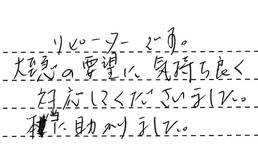 リピーターです。
大変の要望に気持ち良く
対応してくださいました。
本当に助かりました。